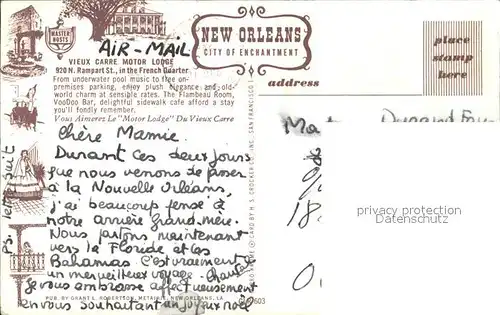 AIR-MAIL
MASTER HOSTS
VIEUX CARRE MOTOR LODGE
920 N. Rampart St., in the French Quarter
From underwater pool music to free on-
premises parking, enjoy plush elegance and old-
world charm at sensible rates. The Flambeau Room,
VooDoo Bar, delightful sidewalk cafe afford a stay
you'll fondly remember.
Vous Aimerez Le "Motor Lodge" Du Vieux Carre
NEW ORLEANS
CITY OF ENCHANTMENT
address
place
stamp
here
Chère Mamie.
Durant ces deux jours
que nous venons de passer
à la Nouvelle Orléans,
j'ai beaucoup pensé à
notre arrière grand-mère.
Nous partons maintenant
vers la Floride et les
Bahamas. C'est vraiment
un merveilleux voyage.
Je vous embrasse affectueusement
en vous souhaitant un joyeux noël
PS. lettre suit
PUB. BY GRANT L. ROBERTSON, METAIRIE, NEW ORLEANS, LA.
Durand
18
privacy protection